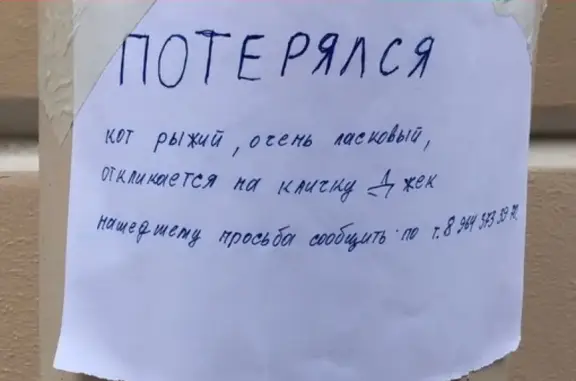 ПОТЕРЯЛСЯ
кот рыжий, очень ласковый,
откликается на кличку Джек
нашедшему просьба сообщить по т. 8 964 373 39